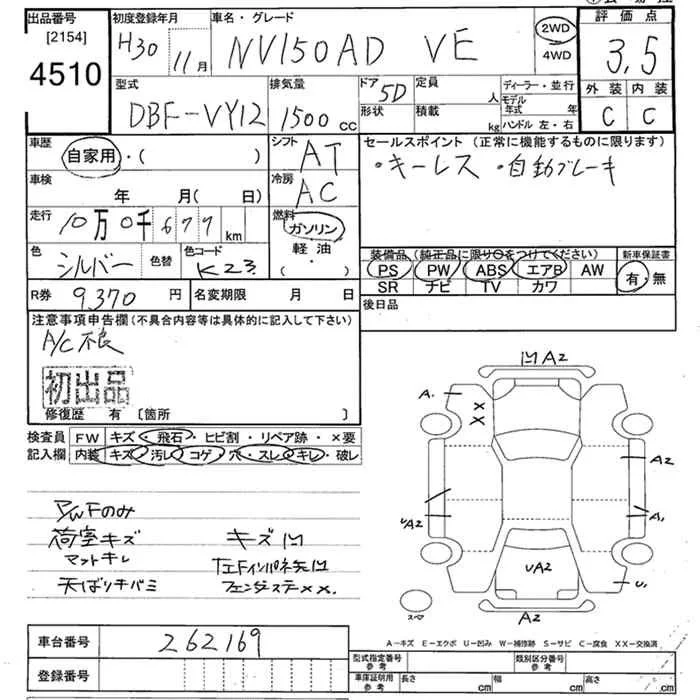 出品番号 初度登録年月 車名・グレード 評価点
[2154] H30 11月 NV150AD VE 2WD 4WD 3.5
4510 外装 内装
型式 排気量 ドア 5D 定員 人 ディーラー・並行 C C
DBF-VY12 1500cc 形状 積載 kg モデル年式 年 ハンドル 左・右
車歴 自家用・( ) シフト AT セールスポイント (正常に機能するものに限ります)
・キーレス ・自動ブレーキ
車検 年 月( 日) 冷房 AC
走行 10万0千677km 燃料 ガソリン 軽油 ・( )
色 シルバー 色替 色コード K23
装備品 (純正品に限り〇をつけてください) 新車保証書
PS PW ABS エアB AW 有・無
SR ナビ TV カワ
R券 9,370円 名変期限 月 日 後日品
注意事項申告欄(不具合内容等は具体的に記入して下さい)
A/C不良
初出品
修復歴 有 [箇所 ]
検査員 FW キズ・飛石・ヒビ割・リペア跡・×要
記入欄 内装 キズ・汚レ・コゲ・穴・スレ・キレ・破レ
P/WFのみ
荷室キズ キズ凹
マットキレ 左Fインパネ矢凹
天ばりキバミ フェンダーステ××
凹A2
A. XX
A2
UA2 A.
UA2 U.
スペア A2
A-キズ E-エクボ U-凹み W-補修跡 S-サビ C-腐食 XX-交換済
車台番号 262169
登録番号
型式指定番号 参考 類別区分番号 参考
車庫証明用 参考 長さ cm 幅 cm 高さ cm